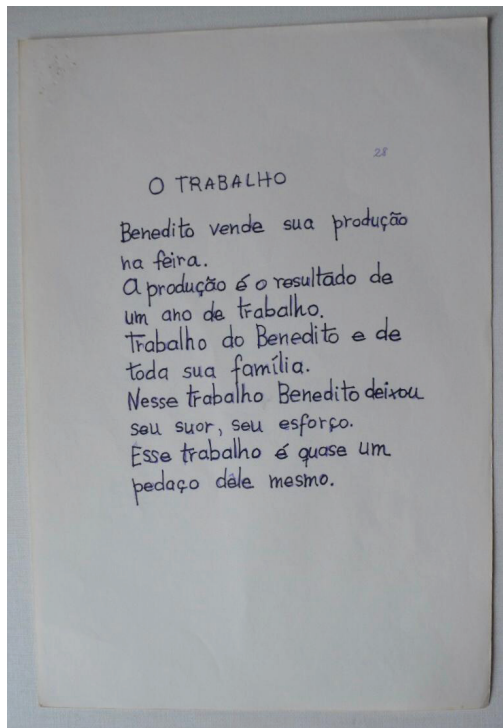 28
O TRABALHO
Benedito vende sua produção
na feira.
A produção é o resultado de
um ano de trabalho.
Trabalho do Benedito e de
toda sua família.
Nesse trabalho Benedito deixou
seu suor, seu esforço.
Esse trabalho é quase um
pedaço dêle mesmo.